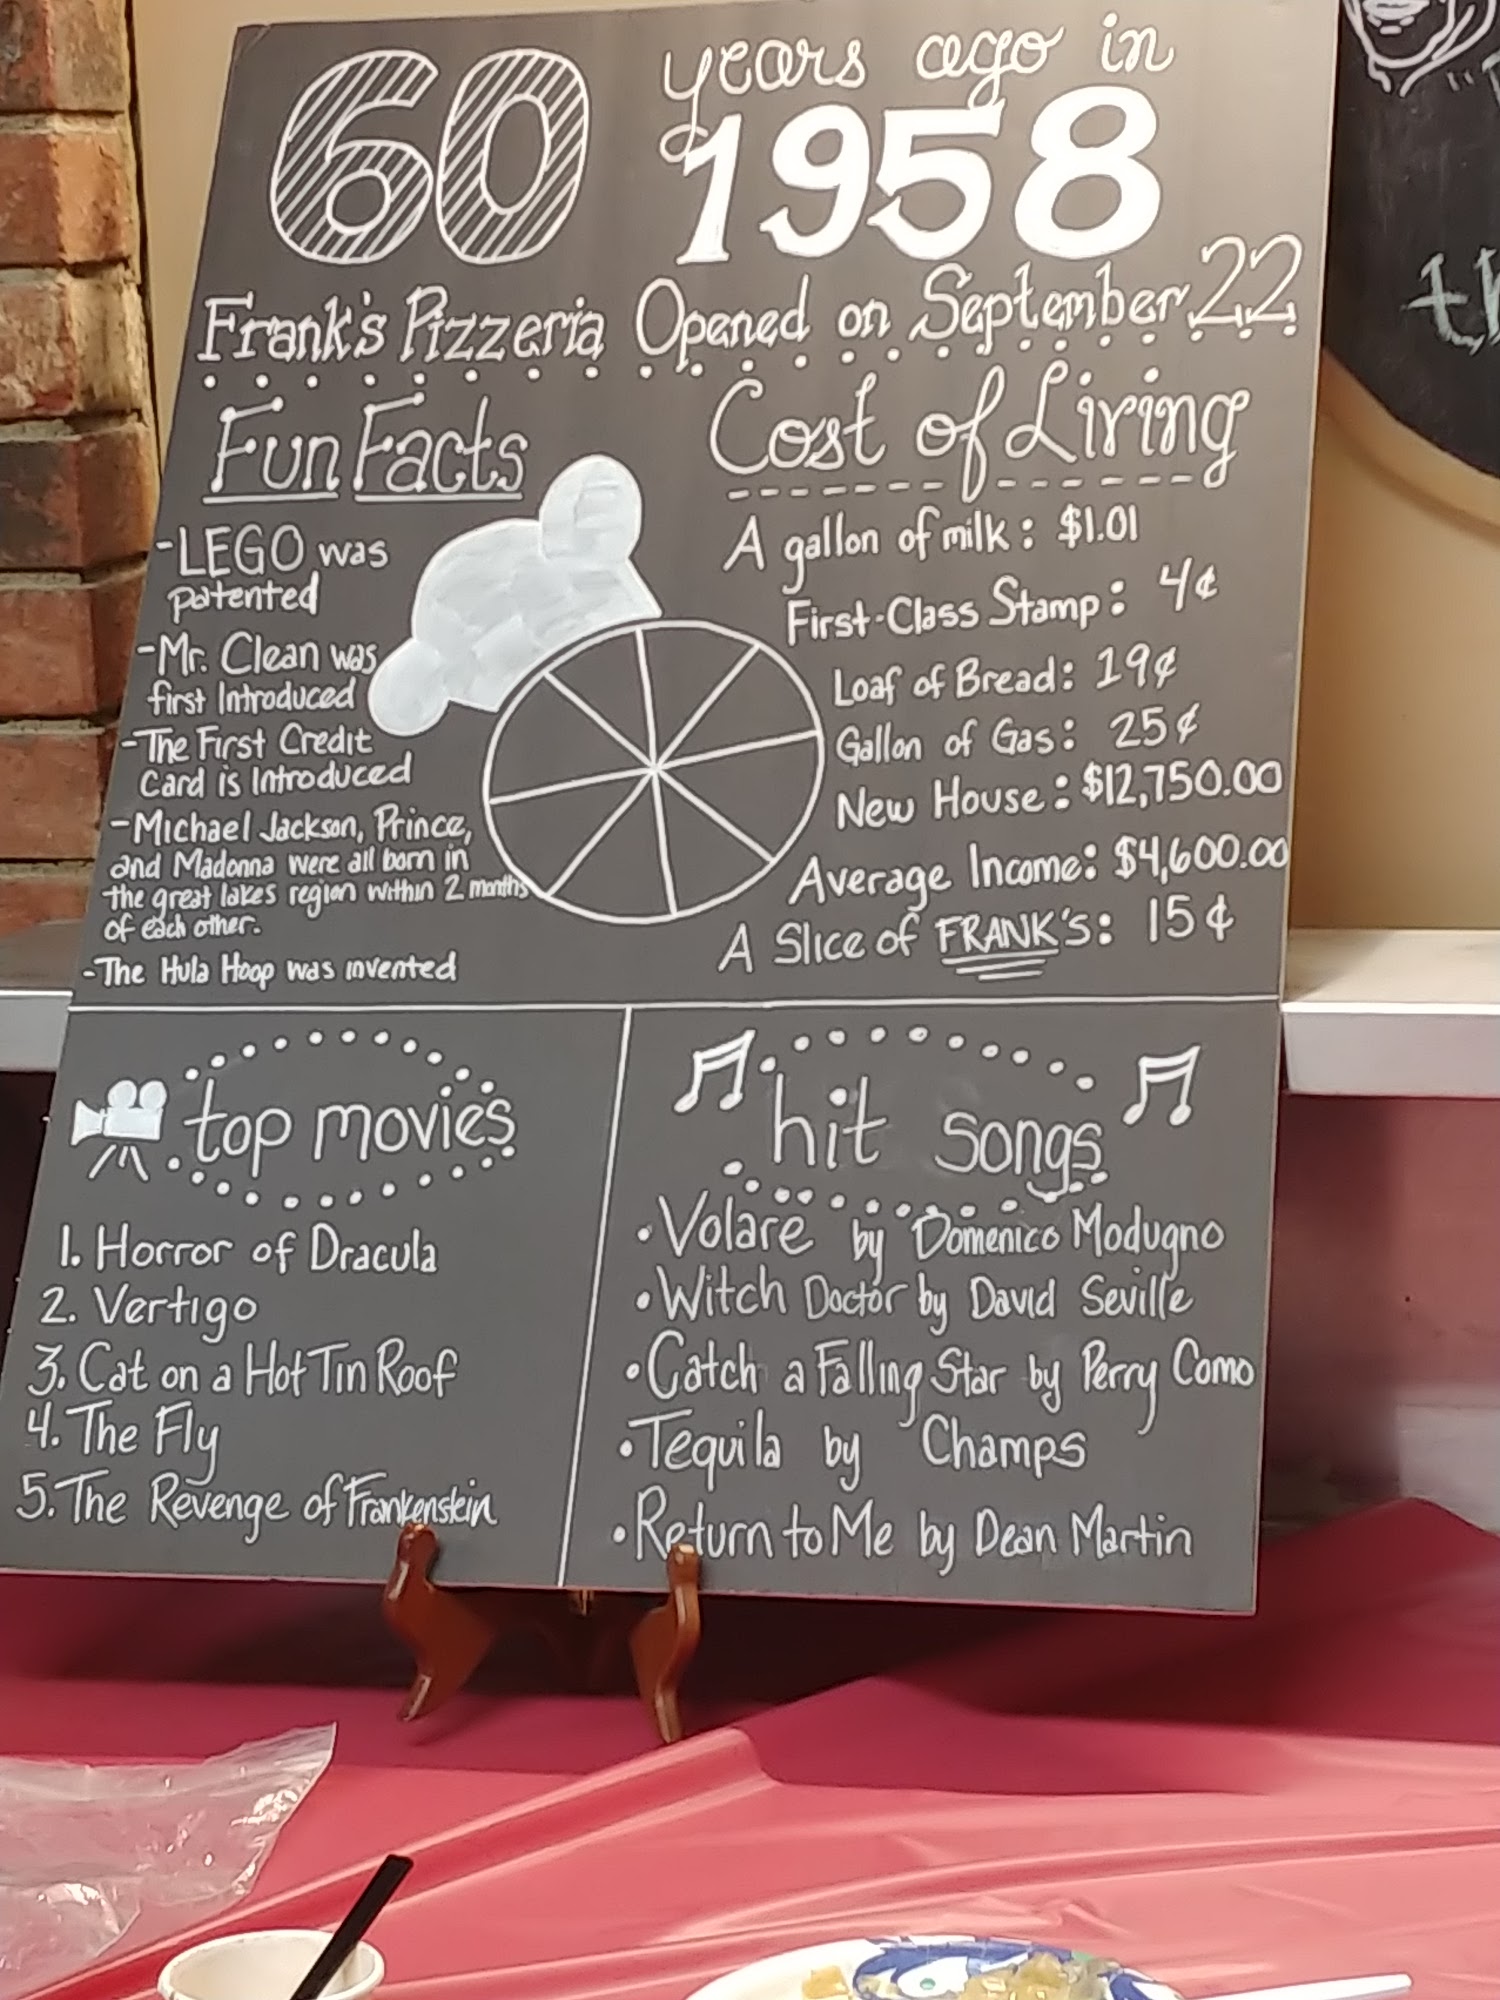 60 years ago in
1958
Frank's Pizzeria Opened on September 22
Fun Facts
-LEGO was
patented
-Mr. Clean was
first Introduced
-The First Credit
Card is Introduced
-Michael Jackson, Prince,
and Madonna were all born in
the great lakes region within 2 months
of each other.
-The Hula Hoop was invented
Cost of Living
A gallon of milk: $1.01
First-Class Stamp: 4¢
Loaf of Bread: 19¢
Gallon of Gas: 25¢
New House: $12,750.00
Average Income: $4,600.00
A Slice of FRANK'S: 15¢
top movies
1. Horror of Dracula
2. Vertigo
3. Cat on a Hot Tin Roof
4. The Fly
5. The Revenge of Frankenstein
hit songs
•Volare by Domenico Modugno
•Witch Doctor by David Seville
•Catch a Falling Star by Perry Como
•Tequila by Champs
•Return to Me by Dean Martin